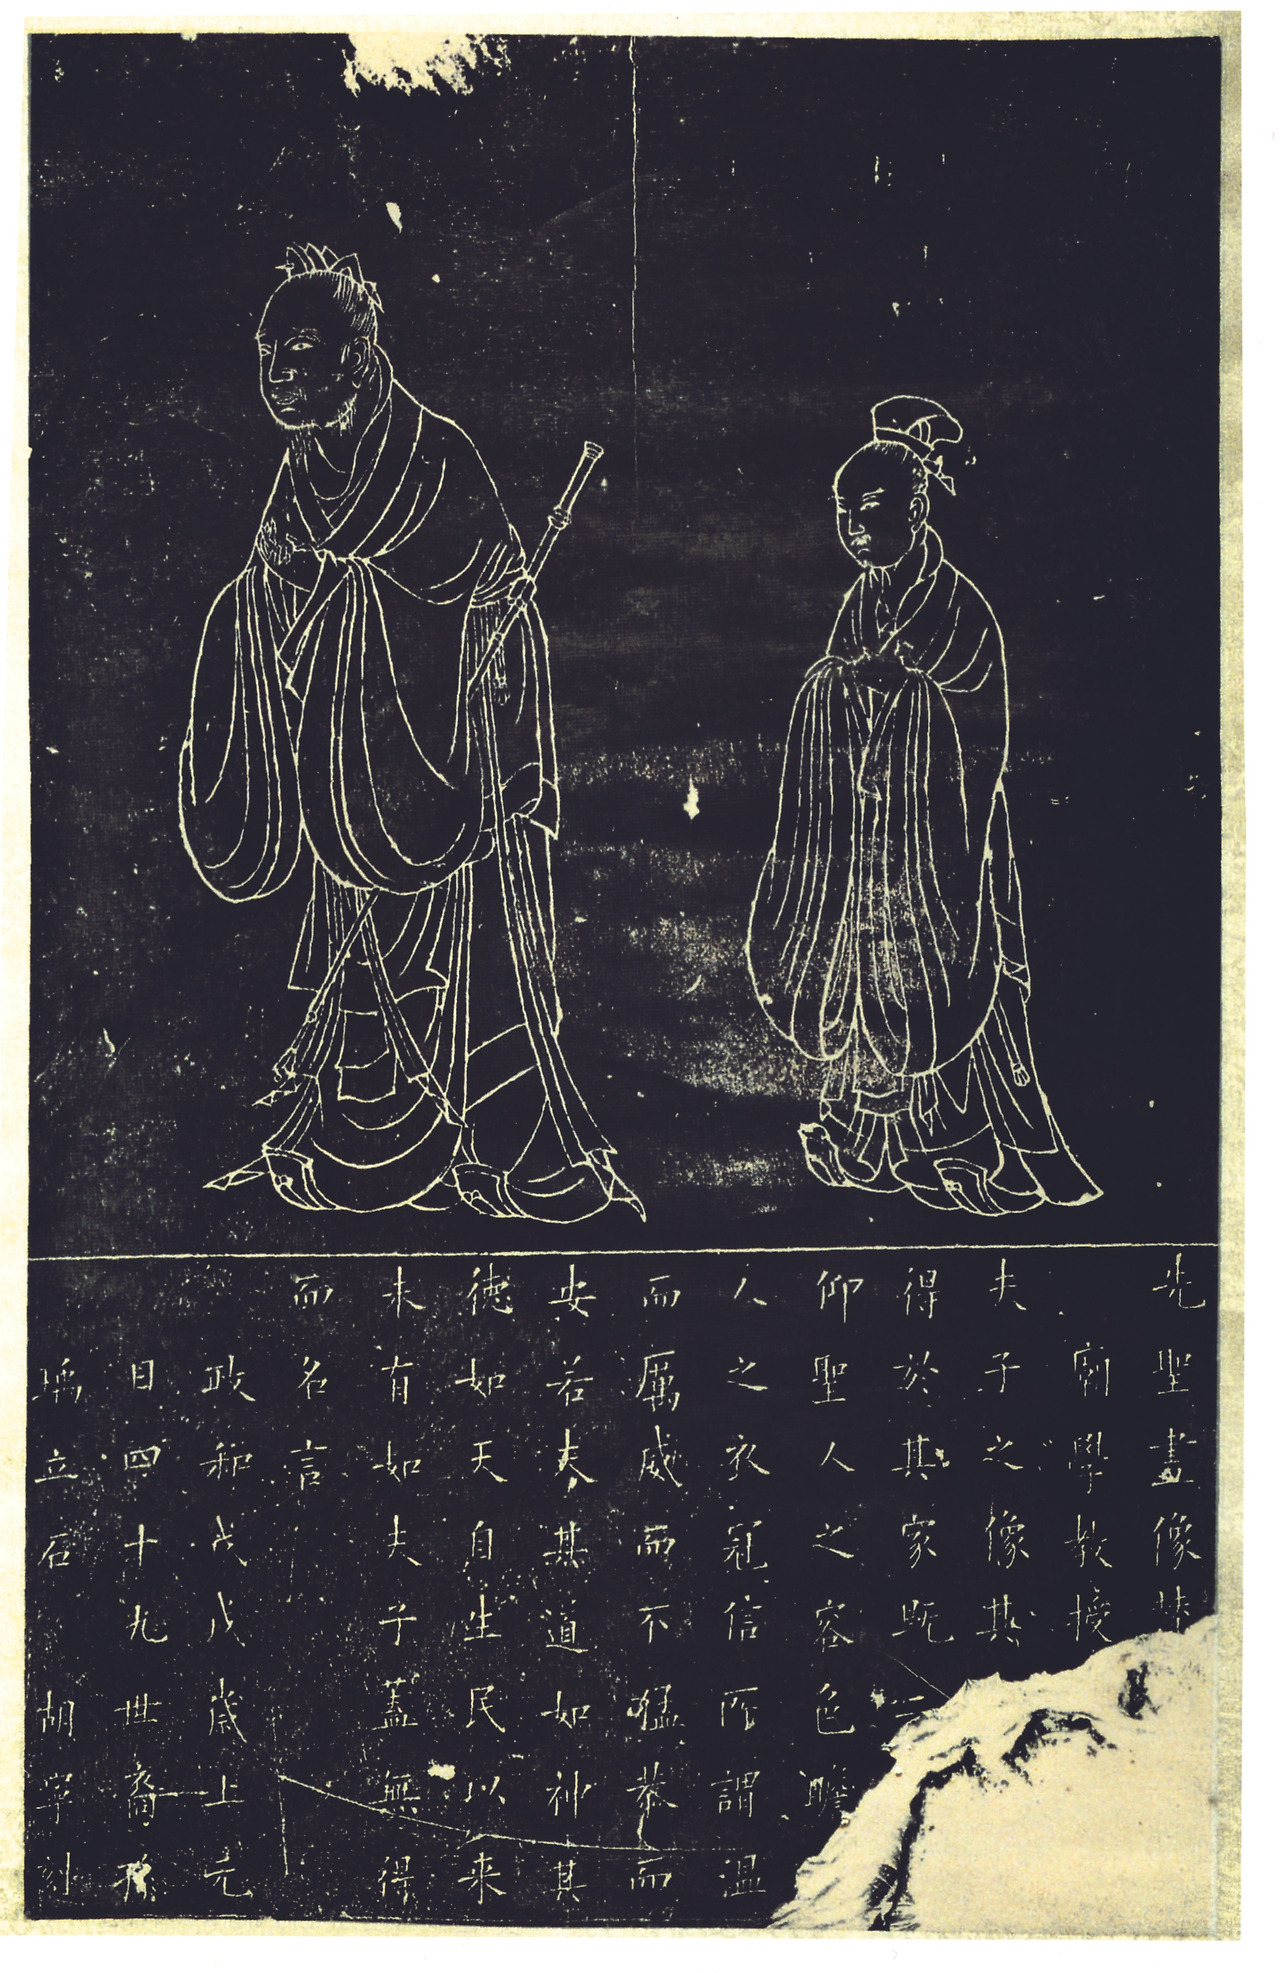 先聖畫像
廟學教授
夫子之像其
得於其家既
仰聖人之容色瞻
人之衣冠信所謂溫
而厲威而不猛恭而
安若夫其道如神其
德如天自生民以来
未有如夫子蓋無得
而名言
政和戊戌歲上元
日四十九世裔孫
瑀立石胡寧刻